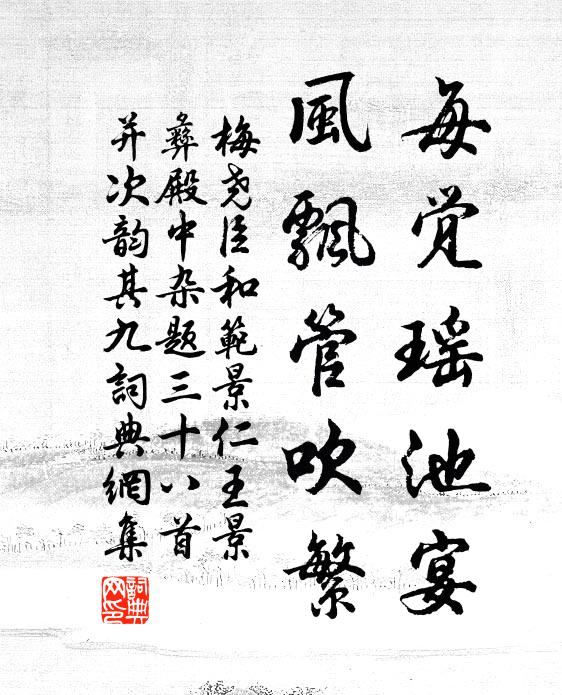 每觉瑶池宴
風飄管吹繁
梅尧臣和範景仁王景
彝殿中杂题三十八首
并次韵其九詞典網集
詞典網印